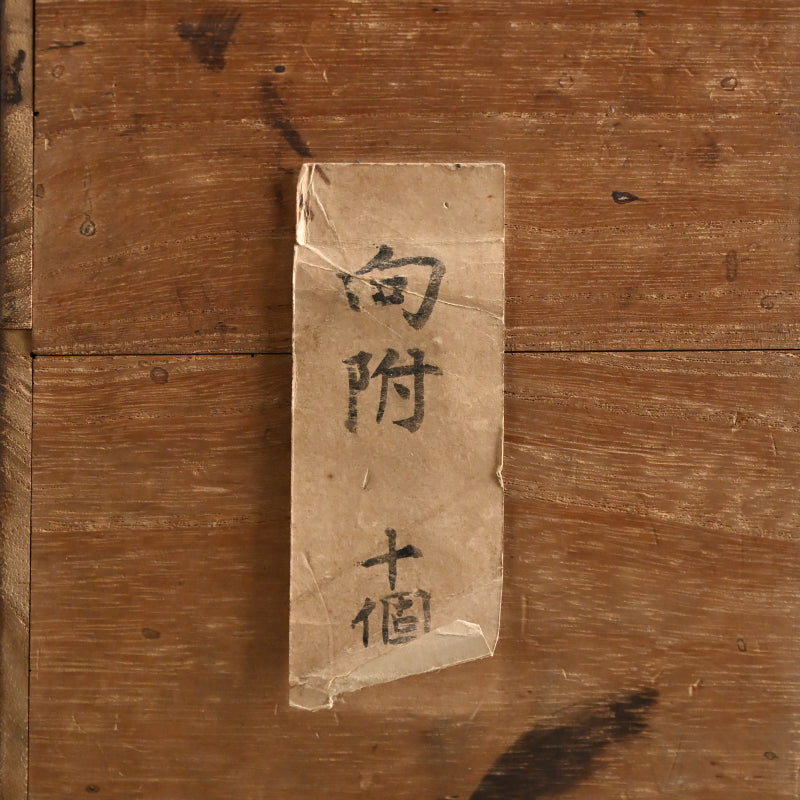 向附 十個